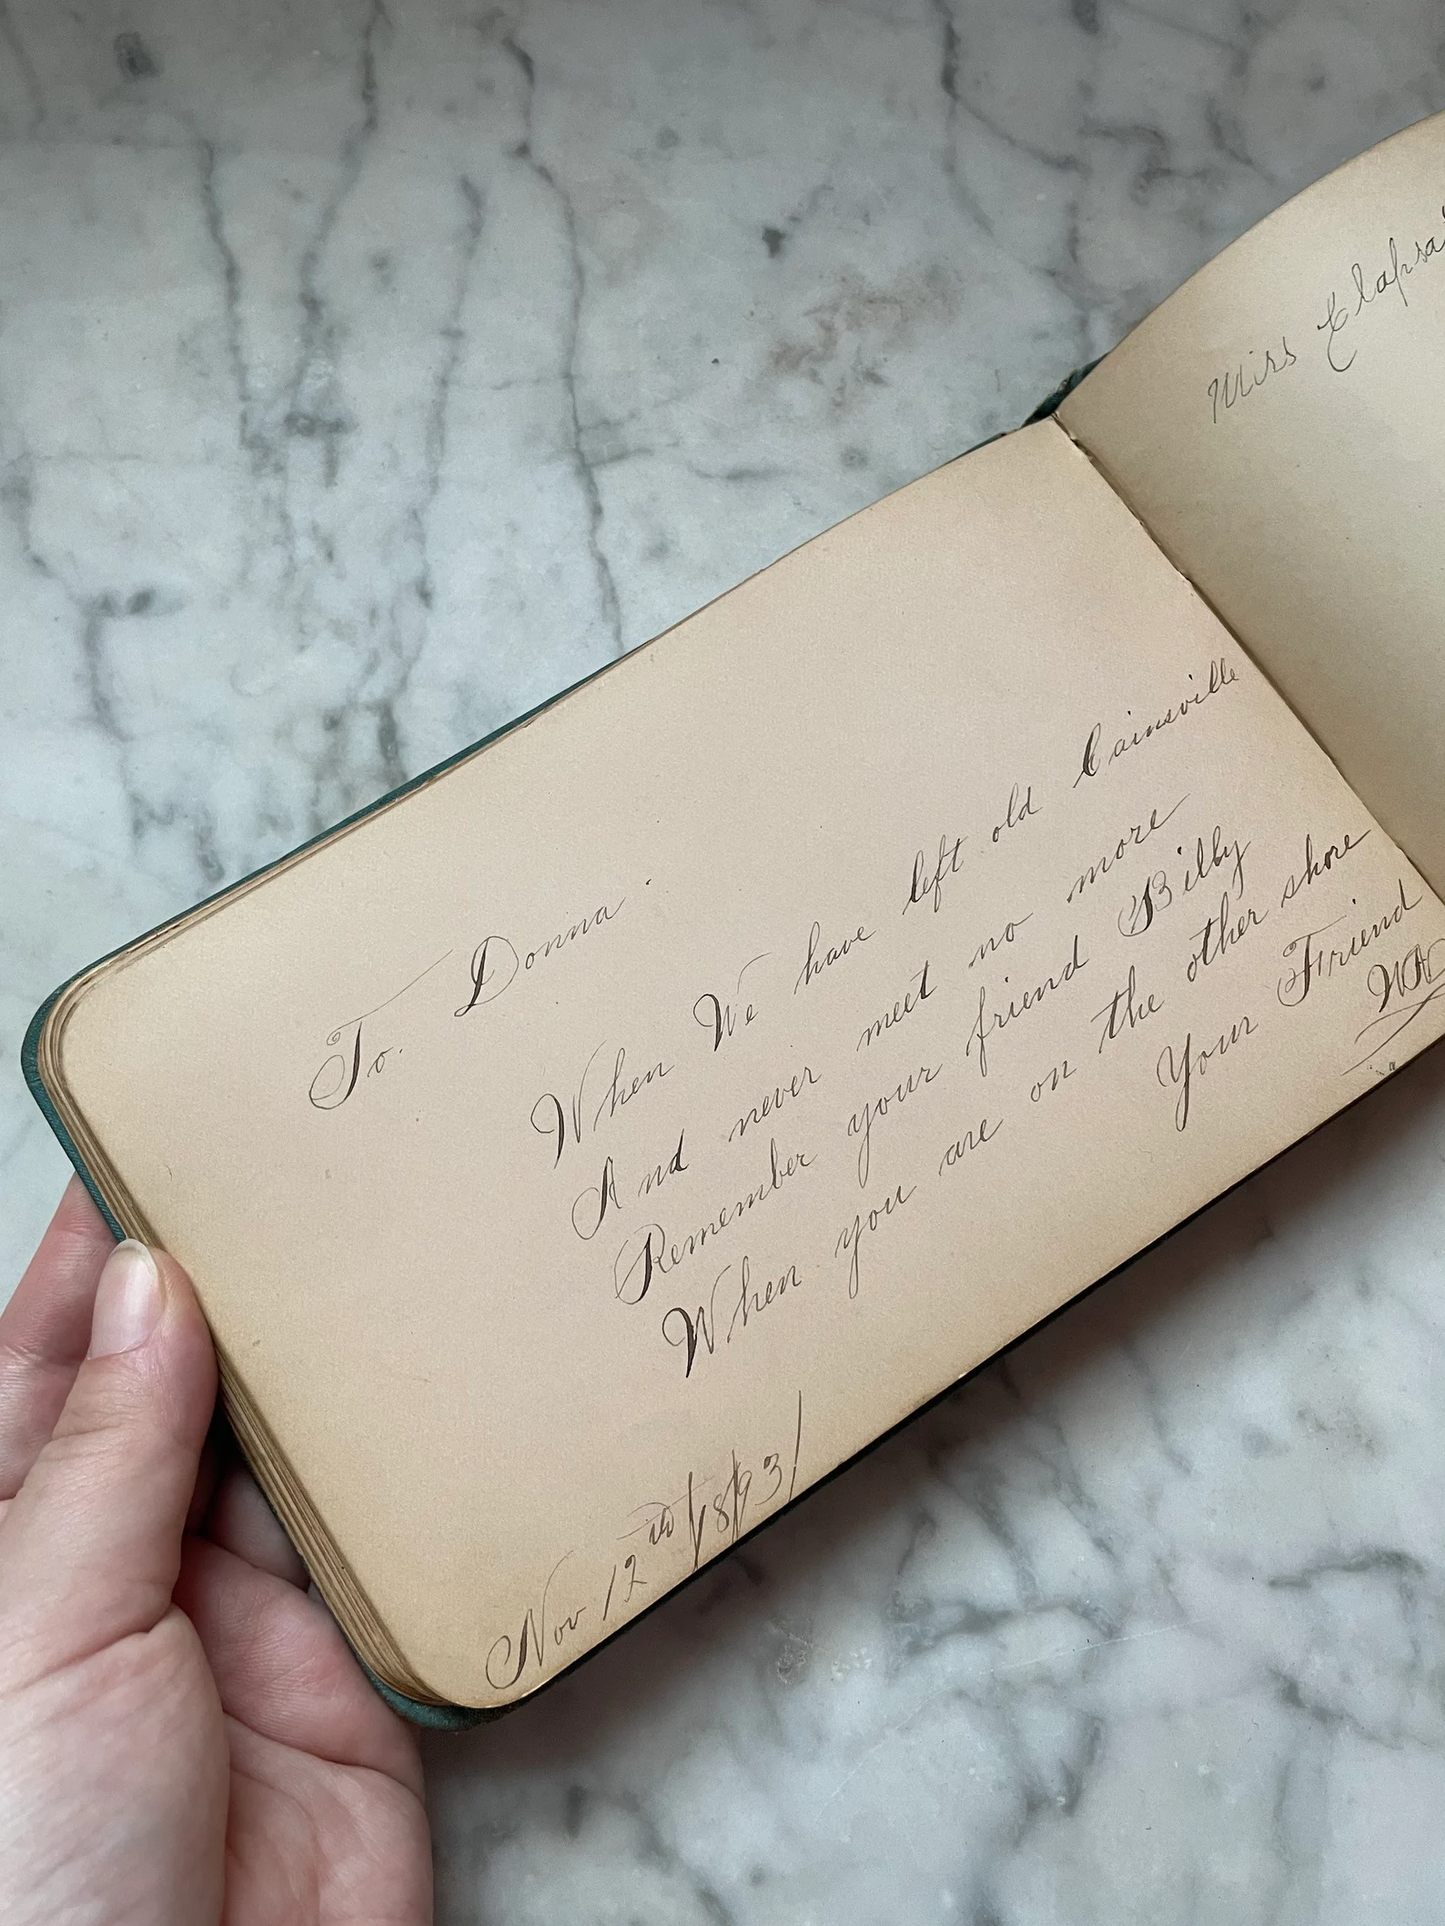 To. Donna.
When We have left old Cainsville
And never meet no more
Remember your friend Billy
When you are on the other shore
Your Friend
Nov 12nd/1893/
Miss